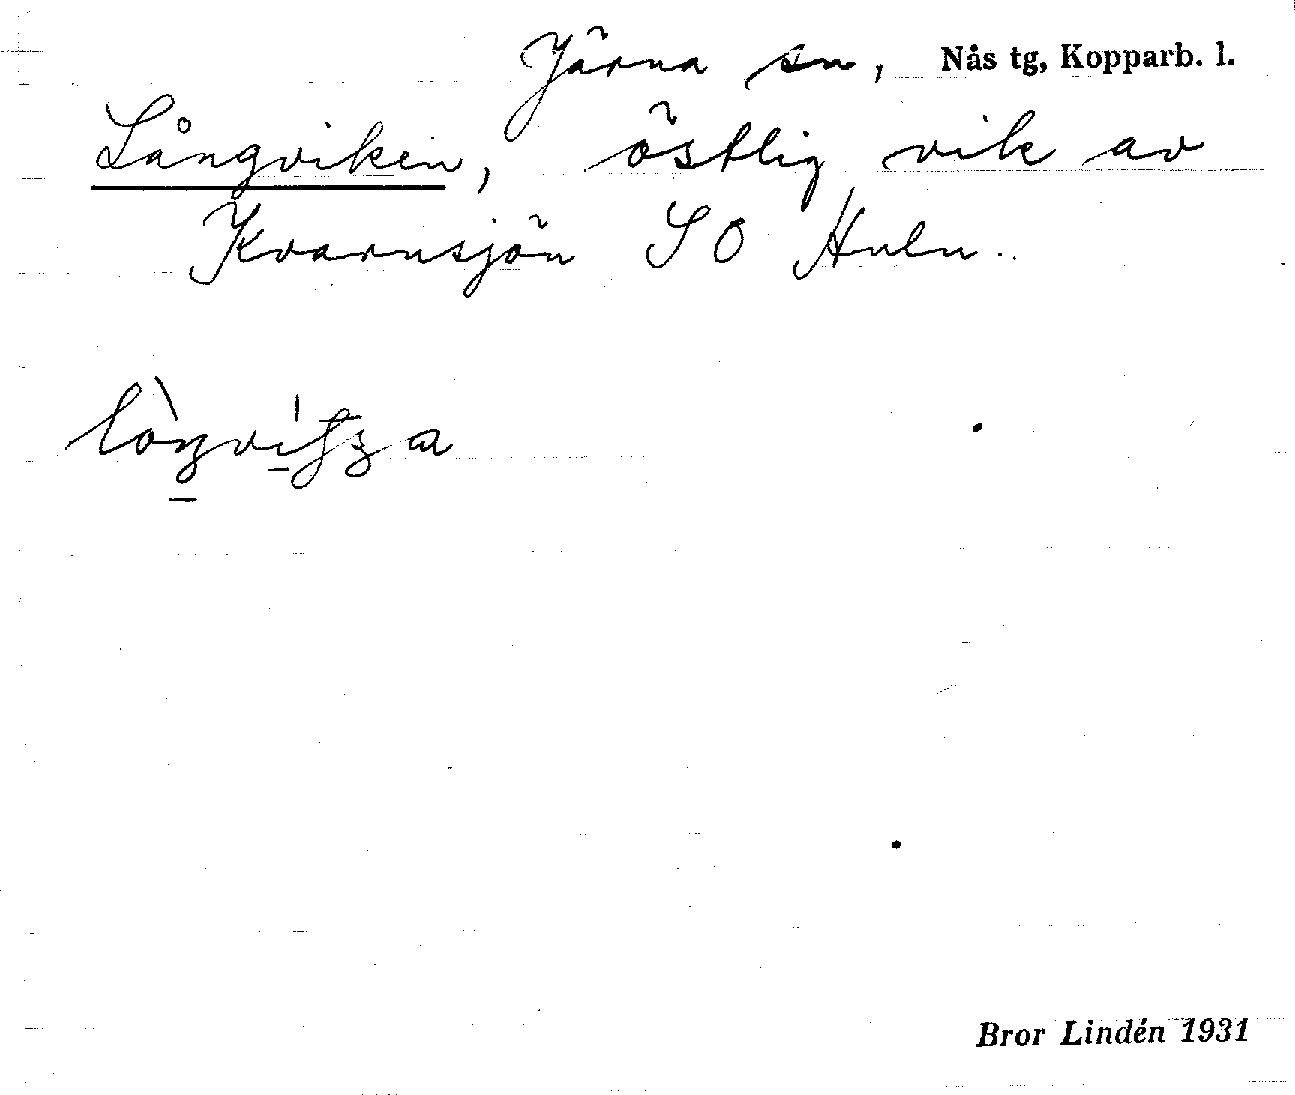 Järna sn, Nås tg, Kopparb. l.
Långviken, östlig vik av
Kvarnsjön SO Huln.
Bror Lindén 1931